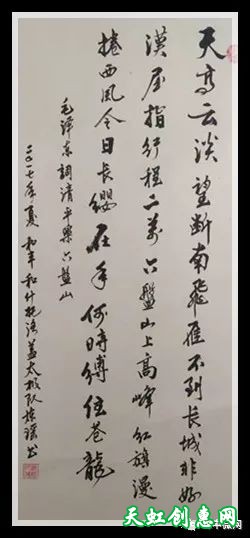 天高云淡望断南飞雁不到长城非好
漢屈指行程二萬六盤山上高峰红旗漫
捲西風今日长纓在手何時缚住苍龍
毛澤东詞清平樂六盤山
二〇一七年夏和丰和什托洛盖太极队瑶书
天虹创意网